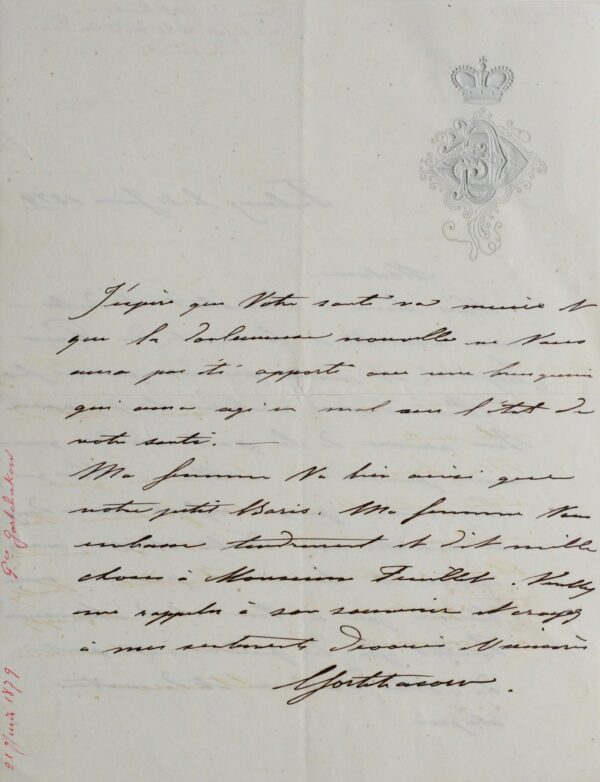 J'espère que Votre santé va mieux et
que la douloureuse nouvelle ne Vous
aura pas été apporté avec une brusquerie
qui aura agi en mal sur l'état de
votre santé. —
Ma femme va bien ainsi que
notre petit Boris. Ma femme Vous
embrasse tendrement et dit mille
choses à Monsieur Feuillet. Veuillez
me rappeler à son souvenir et croyez
à mes sentiments dévoués
Gortchacow.
Pce Gortchakow
21 Juin 1879